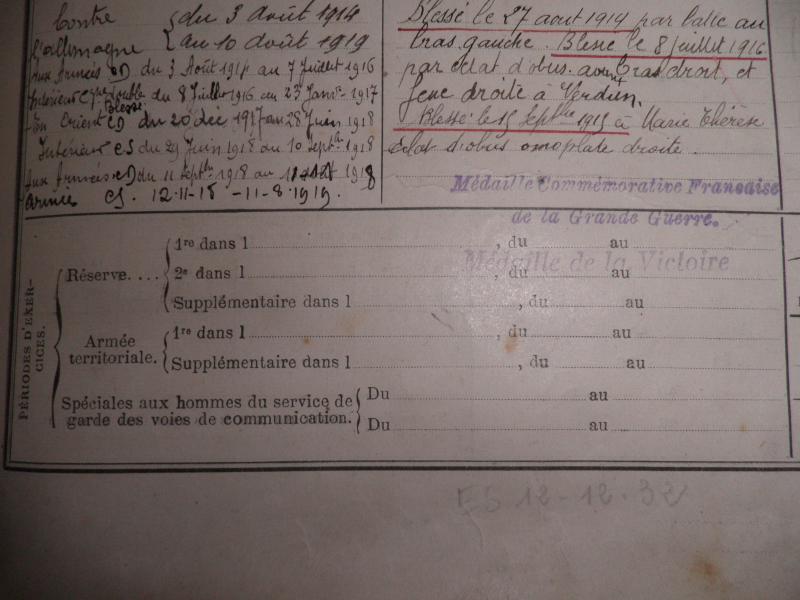 Contre { du 3 Août 1914
l'allemagne { au 10 Août 1919
Aux Armées CD du 3 Août 1914 au 7 Juillet 1916
Intérieur double du 8 Juillet 1916 au 23 Janv. 1917
Blessé
En Orient CD du 20 déc 1917 au 28 Juin 1918
Intérieur CS du 29 Juin 1918 au 10 Septbre 1918
Aux Armées CD du 11 Septbre 1918 au 1918
Armée CS. 12-11-18 -11-8-1919.
Blessé le 27 aout 1914 par balle au
bras gauche. Blessé le 8 juillet 1916
par éclat d'obus. bras droit, et
droite à Verdun,
Blessé le 15 Septbre 1915 à Marie Thérèse
éclat d'obus omoplate droite.
Médaille Commémorative Française
de la Grande Guerre.
Médaille de la Victoire
PÉRIODES D'EXER-
CICES.
Réserve. ...
1re dans l , du au
2e dans l , du au
Supplémentaire dans l , du au
Armée
territoriale.
1re dans l , du au
Supplémentaire dans l , du au
Spéciales aux hommes du service de
garde des voies de communication.
Du au
Du au
FS 12-12-32